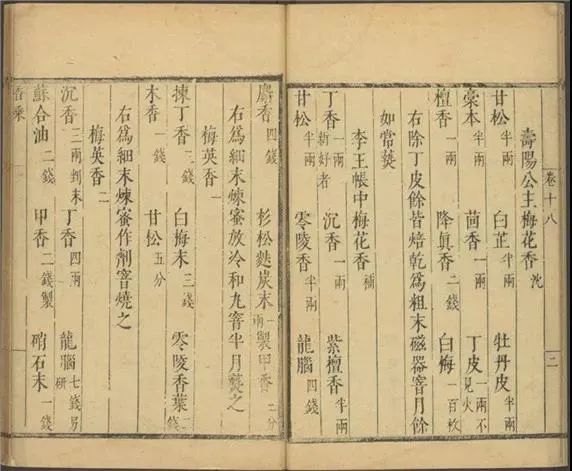 卷十八 二
壽陽公主梅花香 沈
甘松半兩 白芷半兩 牡丹皮半兩
藁本半兩 茴香一兩 丁皮一兩不見火
檀香一兩 降眞香二錢 白梅一百枚
右除丁皮餘皆焙乾爲粗末磁器窨月餘
如常爇
李王帳中梅花香 補
丁香一兩新好者 沉香一兩 紫檀香半兩
甘松半兩 零陵香半兩 龍腦四錢
麝香四錢 杉松麩炭末一兩 製甲香三分
右爲細末煉蜜放冷和丸窨半月爇之
梅英香一
揀丁香三錢 白梅末三錢 零陵香葉二錢
木香一錢 甘松五分
右爲細末煉蜜作劑窨燒之
梅英香二
沉香三兩剉末 丁香四兩 龍腦七錢另研
蘇合油二錢 甲香二錢製 硝石末一錢
香乘